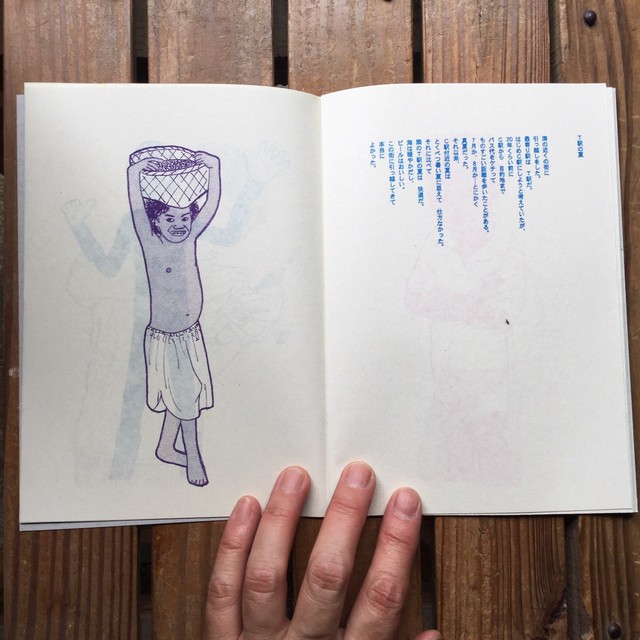 T駅の夏
海のそばの街に
引っ越しをした。
最寄り駅は T駅だ。
はじめはC駅にしようと考えていたが、
20年くらい前に
C駅から 目的地まで
バス代をケチって
ものすごい距離を歩いたことがある。
7月か、8月か…とにかく
真夏だった。
それ以来、
C駅付近の夏は
とくべつ暑い夏に思えて 仕方なかった。
それに比べて
隣のT駅の夏は 快適だ。
海は穏やかだし、
ビールはおいしい。
この街に引っ越してきて、
本当に
よかった。